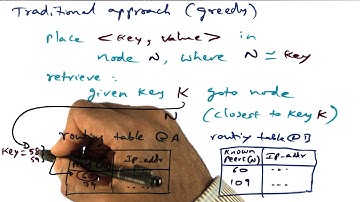 Traditional approach (greedy)
place <key, value> in
node N, where N ≃ key
retrieve:
given key K goto node
N (closest to key K)
routing table @ A
routing table @ B
Key = 58
59
Ip-addr
60
79
....
Known Peers (N)
Ip-addr
60
....
109
....